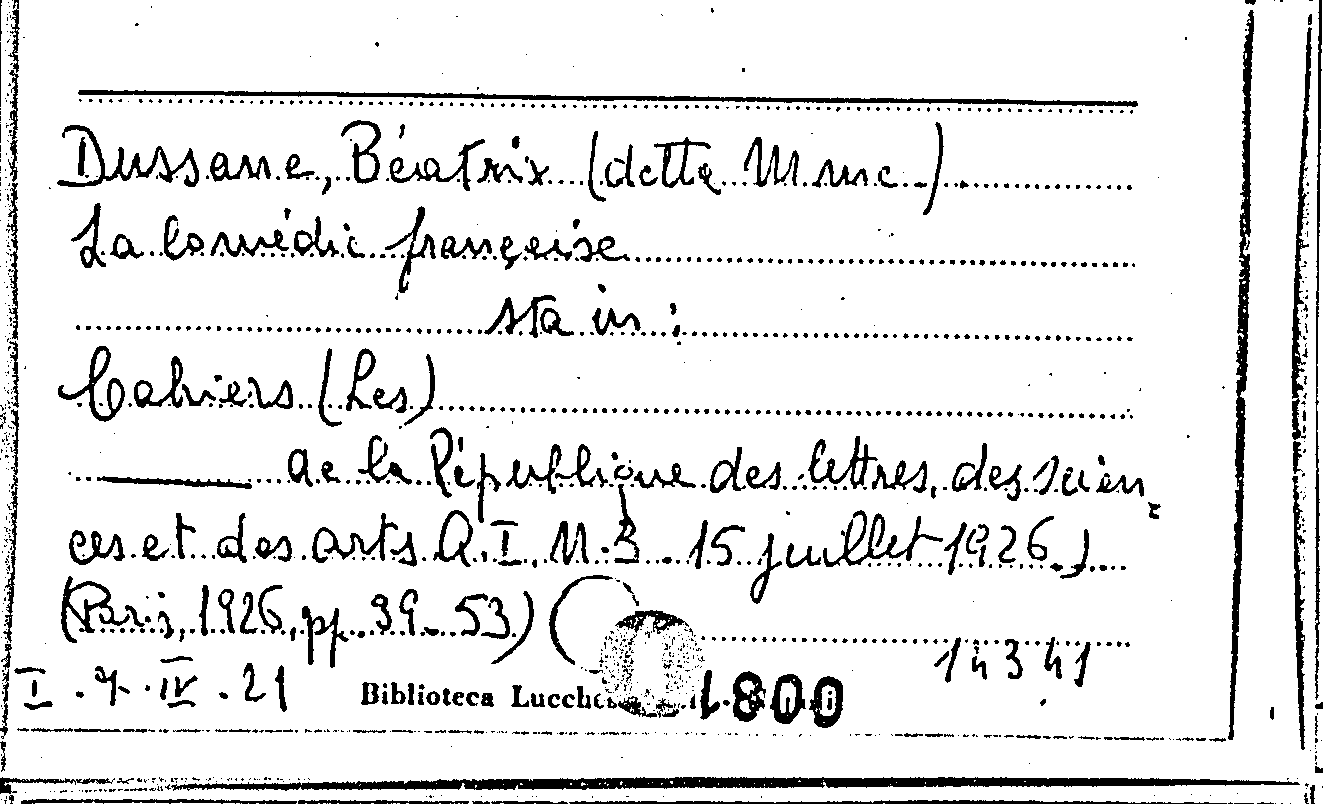 Dussane, Béatrix (detta Mme.).
La Comédie française
sta in:
Cahiers (Les)
de la République des lettres, des scien-
ces et des arts A. I. N. 3. 15 juillet 1926.)
(Paris, 1926, pp. 39-53)
14341
I. 7. IV. 21
Biblioteca
1800